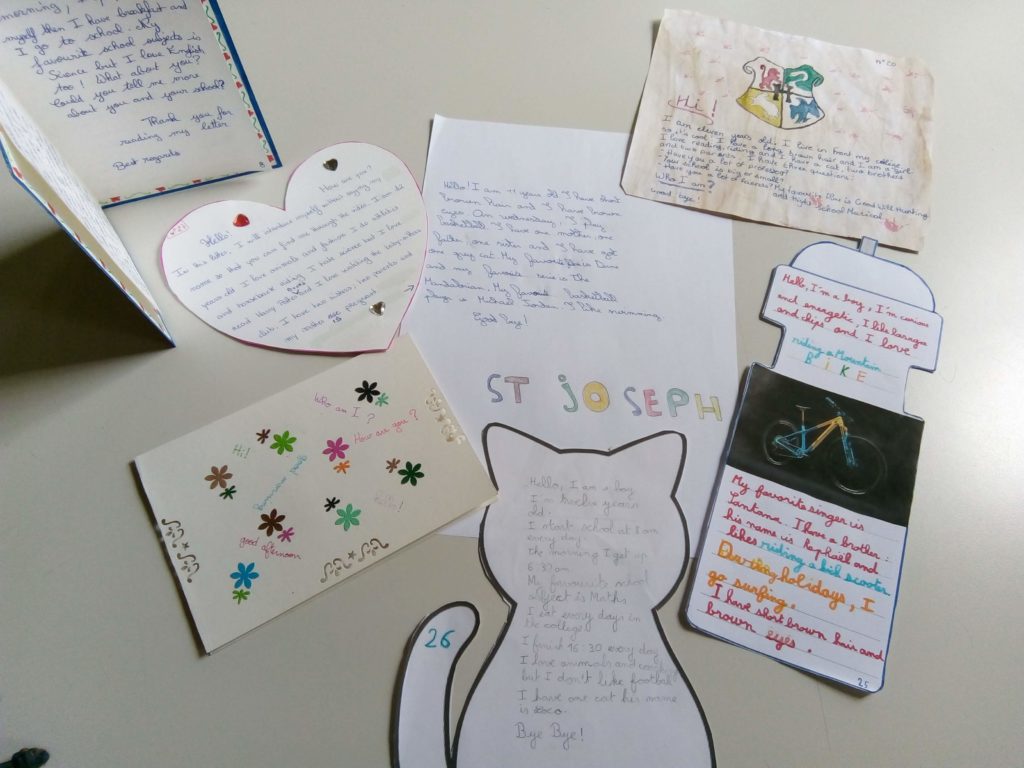 morning,
myself then I have breakfast and
I go to school. My
favourite school subjects is
Science but I love English
too! What about you?
Could you tell me more
about you and your school?
Thank you for
reading my letter
Best regards
8
How are you?
n°27
Hello!
In this letter, I will introduce myself without saying my
name so that you can find me through the video. I am
years old I love animals and fashion I do athletics
and horseback riding I hate science but I love
read I love walking the baby
club. I have two sisters, two parents and
my sister is pregnant
Hello! I am 11 years old I have short
brown hair and I have brown
eyes On wednesday, I play
basketball I have one mother, one
father, one sister and I have got
one grey cat My favorite is Dune
and my favorite serie is The
Mandalorian. My favorite basketball
player is Michael Jordan. I like swimming
Good bye!
ST JOSEPH
n°20
Hi!
I am eleven years old. I live in front my college
so it's cool. I have a long brown hair and I am a girl
I love reading, riding and I have a cat, two brothers
and two parents. I have three questions:
- Have you a pet or
- Your school is big or small?
- Have you a lot of friends? My favorite films is Good Will Hunting
and High School Musical
Who I am?
Good bye!
Hello, I'm a boy, I'm curious
and energetic, I like lasagna
and chips and I love
riding a Mountain
BIKE
My favorite singer is
Santana. I have a brother:
his name is Raphaël and
likes riding a kick scooter
During holidays, I
go surfing.
I have short brown hair and
brown eyes.
25
Who am I?
How are you?
Hi!
good morning
Hello!
good afternoon
Hello, I am a boy
I'm twelve years
old.
I start school at 8 am
every day.
The morning I get up
6:30 am
My favourite school
subject is Maths
I eat every days in
the college
I finish 16:30 every day
I love animals and
but I don't like football
I have one cat his name
is
Bye Bye!
26